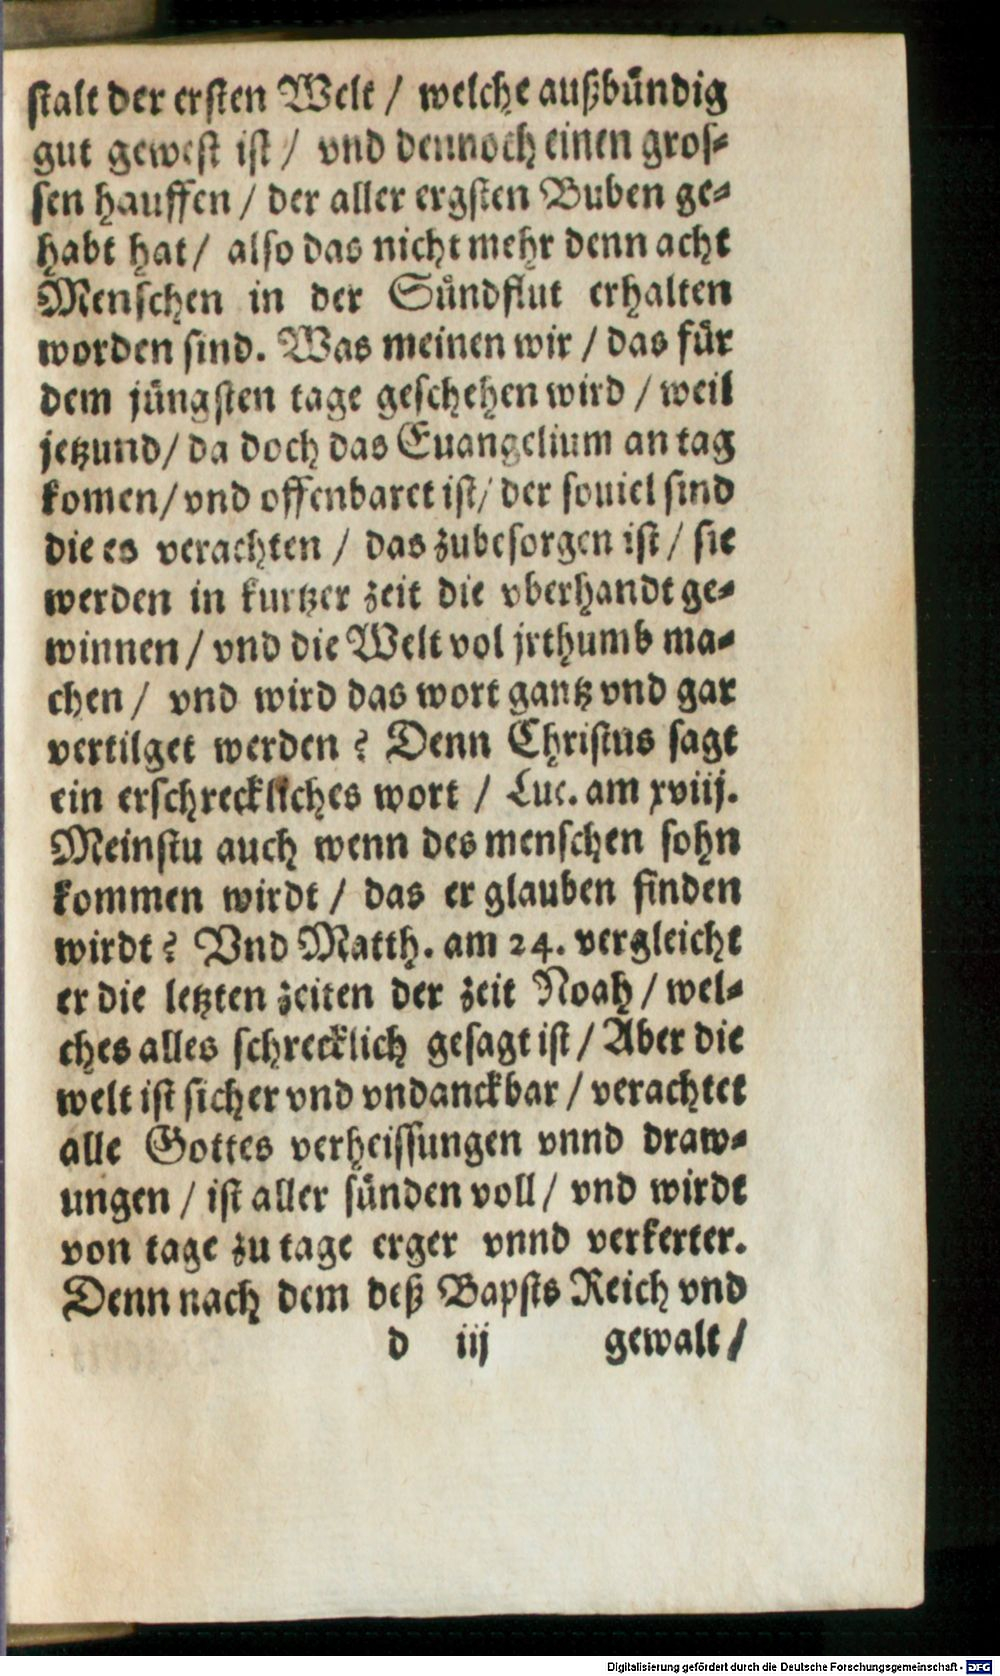 stalt der ersten Welt / welche außbündig
gut gewest ist / vnd dennoch einen gros-
sen hauffen / der aller ergsten Buben ge-
habt hat / also das nicht mehr denn acht
Menschen in der Sündflut erhalten
worden sind. Was meinen wir / das für
dem jüngsten tage geschehen wird / weil
jetzund / da doch das Euangelium an tag
komen / vnd offenbaret ist / der souiel sind
die es verachten / das zubesorgen ist / sie
werden in kurtzer zeit die vberhandt ge-
winnen / vnd die Welt vol jrthumb ma-
chen / vnd wird das wort gantz vnd gar
vertilget werden? Denn Christus sagt
ein erschreckliches wort / Luc. am xviij.
Meinstu auch wenn des menschen sohn
kommen wirdt / das er glauben finden
wirdt? Vnd Matth. am 24. vergleicht
er die letzten zeiten der zeit Noah / wel-
ches alles schrecklich gesagt ist / Aber die
welt ist sicher vnd vndanckbar / verachtet
alle Gottes verheissungen vnnd draw-
ungen / ist aller sünden voll / vnd wirdt
von tage zu tage erger vnnd verkerter.
Denn nach dem deß Bapsts Reich vnd
d iij gewalt /
Digitalisierung gefördert durch die Deutsche Forschungsgemeinschaft - DFG